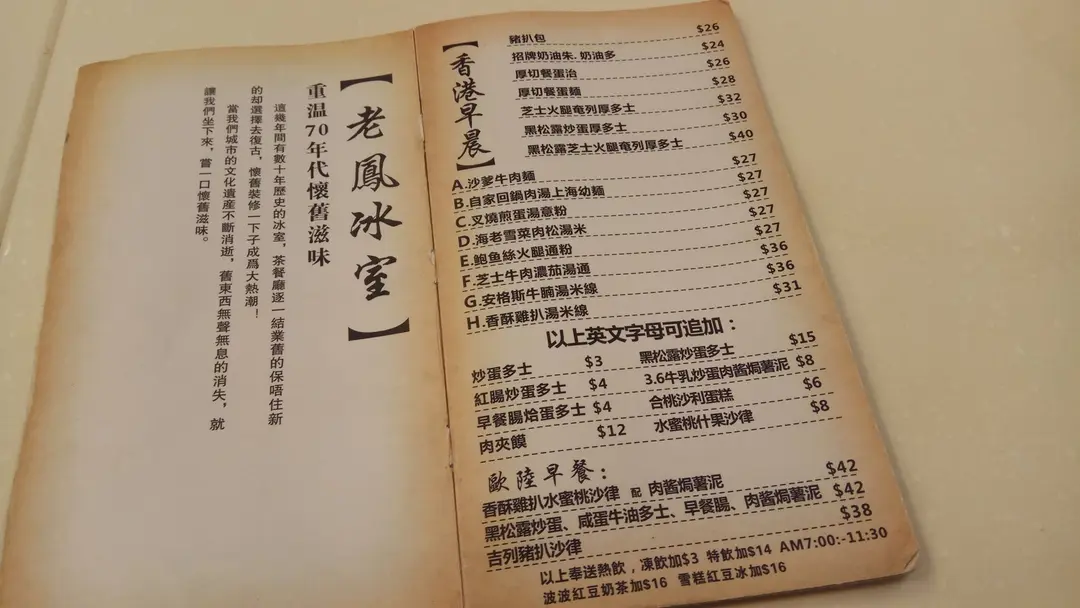 【老鳳冰室】
重温70年代懷舊滋味
這幾年間有數十年歷史的冰室，茶餐廳逐一結業舊的保唔住新
的却選擇去復古，懷舊裝修一下子成爲大熱潮！
當我們城市的文化遺産不斷消逝，舊東西無聲無息的消失，就
讓我們坐下來，嘗一口懷舊滋味。
【香港早晨】
豬扒包 $26
招牌奶油朱．奶油多 $24
厚切餐蛋治 $26
厚切餐蛋麵 $28
芝士火腿奄列厚多士 $32
黑松露炒蛋厚多士 $30
黑松露芝士火腿奄列厚多士 $40
A.沙爹牛肉麵 $27
B.自家回鍋肉湯上海幼麵 $27
C.叉燒煎蛋湯意粉 $27
D.海老雪菜肉松湯米 $27
E.鮑魚絲火腿通粉 $27
F.芝士牛肉濃茄湯通 $36
G.安格斯牛腩湯米線 $36
H.香酥雞扒湯米線 $31
以上英文字母可追加：
炒蛋多士 $3 黑松露炒蛋多士 $15
紅腸炒蛋多士 $4 3.6牛乳炒蛋肉酱焗薯泥 $8
早餐腸烚蛋多士 $4 合桃沙利蛋糕 $6
肉夾饃 $12 水蜜桃什果沙律 $8
歐陸早餐：
香酥雞扒水蜜桃沙律 配 肉酱焗薯泥 $42
黑松露炒蛋、咸蛋牛油多士、早餐腸、肉酱焗薯泥 $42
吉列豬扒沙律 $38
以上奉送熱飲，凍飲加$3 特飲加$14 AM7:00:-11:30
波波紅豆奶茶加$16 雪糕紅豆冰加$16